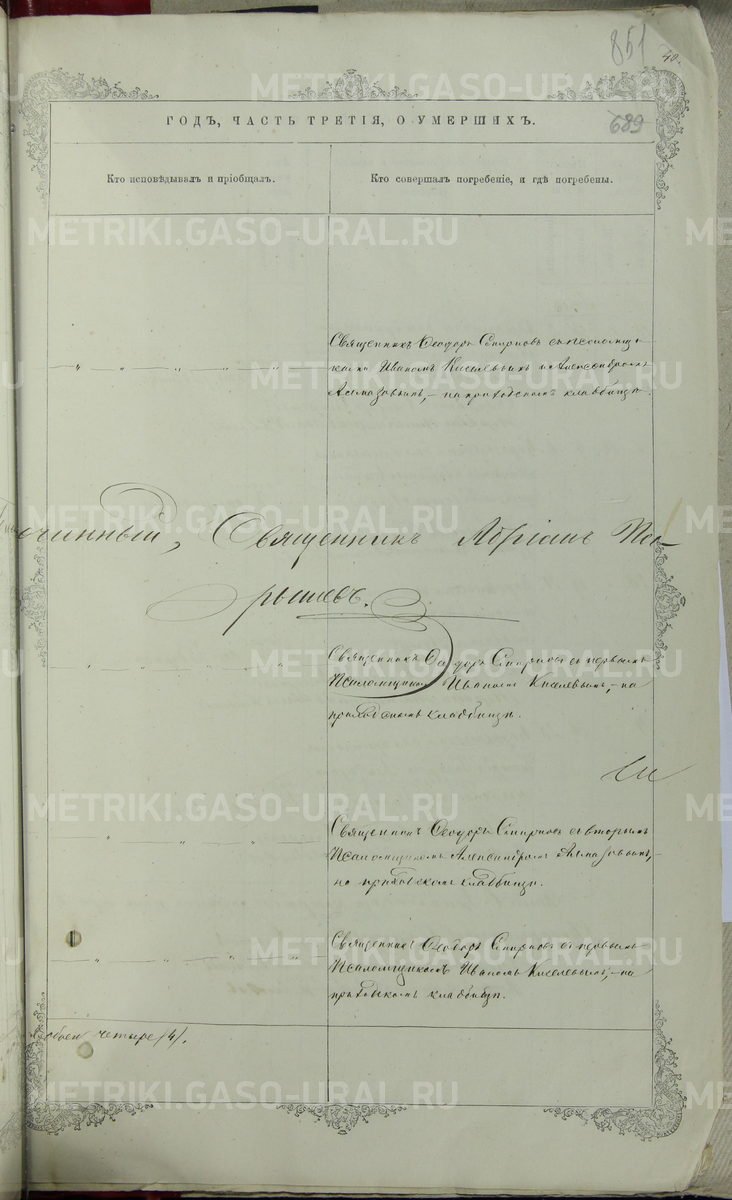 851
40.
689
ГОДЪ, ЧАСТЬ ТРЕТІЯ, О УМЕРШИХЪ.
Кто исповѣдывалъ и пріобщалъ.
Кто совершалъ погребеніе, и гдѣ погребены.
Священникъ Ѳеодоръ Смирновъ съ псаломщи-
ками Иваномъ Киселевымъ и Александромъ
Алмазовымъ, – на приходскомъ кладбищѣ.
чинный, Священникъ Адріанъ
Священникъ Ѳеодоръ Смирновъ съ первымъ
Псаломщикомъ Иваномъ Киселевымъ, – на
приходскомъ кладбищѣ.
Священникъ Ѳеодоръ Смирновъ съ вторымъ
Псаломщикомъ Александромъ Алмазовымъ, –
на приходскомъ кладбищѣ.
Священникъ Ѳеодоръ Смирновъ съ первымъ
Псаломщикомъ Иваномъ Киселевымъ, – на
приходскомъ кладбищѣ.
обоего четыре /4/.
METRIKI.GASO-URAL.RU